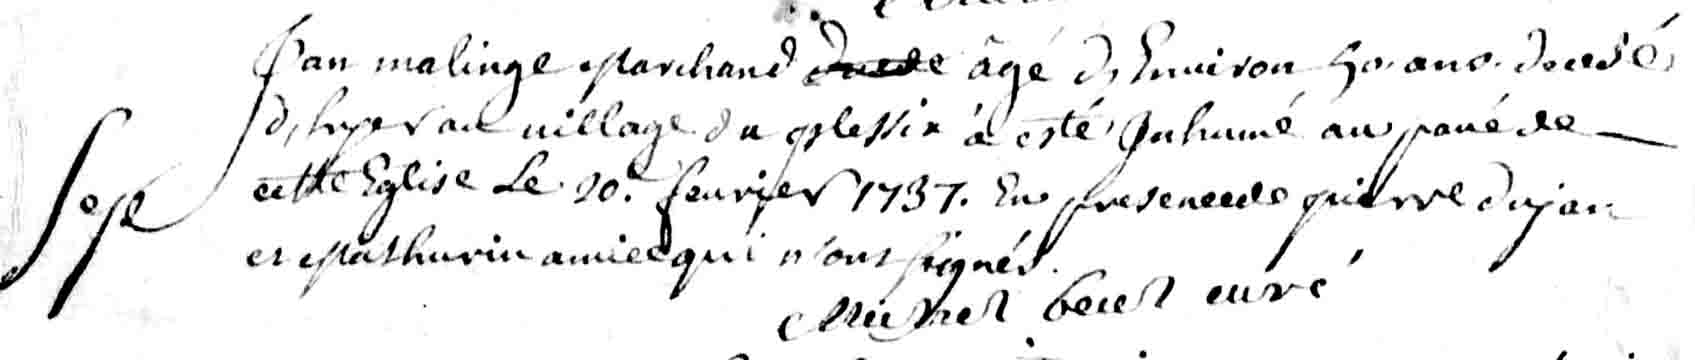 Jan malinge Marchand âgé d'Environ 50. ans. decedé
d'hyer au village du plessix a esté Inhumé au pavé de
cette Eglise Le 20. fevrier 1737. En presence de pierre dujan
et Mathurin amice qui n'ont signés.
sep
Michel curé